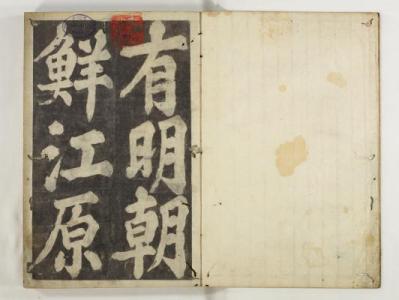 有明朝
鮮江原